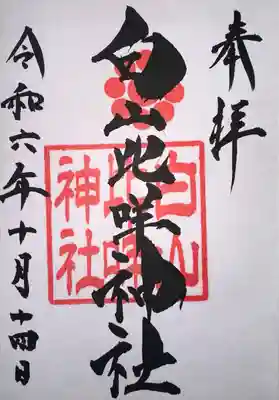 奉拝
白山比咩神社
令和六年十月十四日
白山
比咩
神社